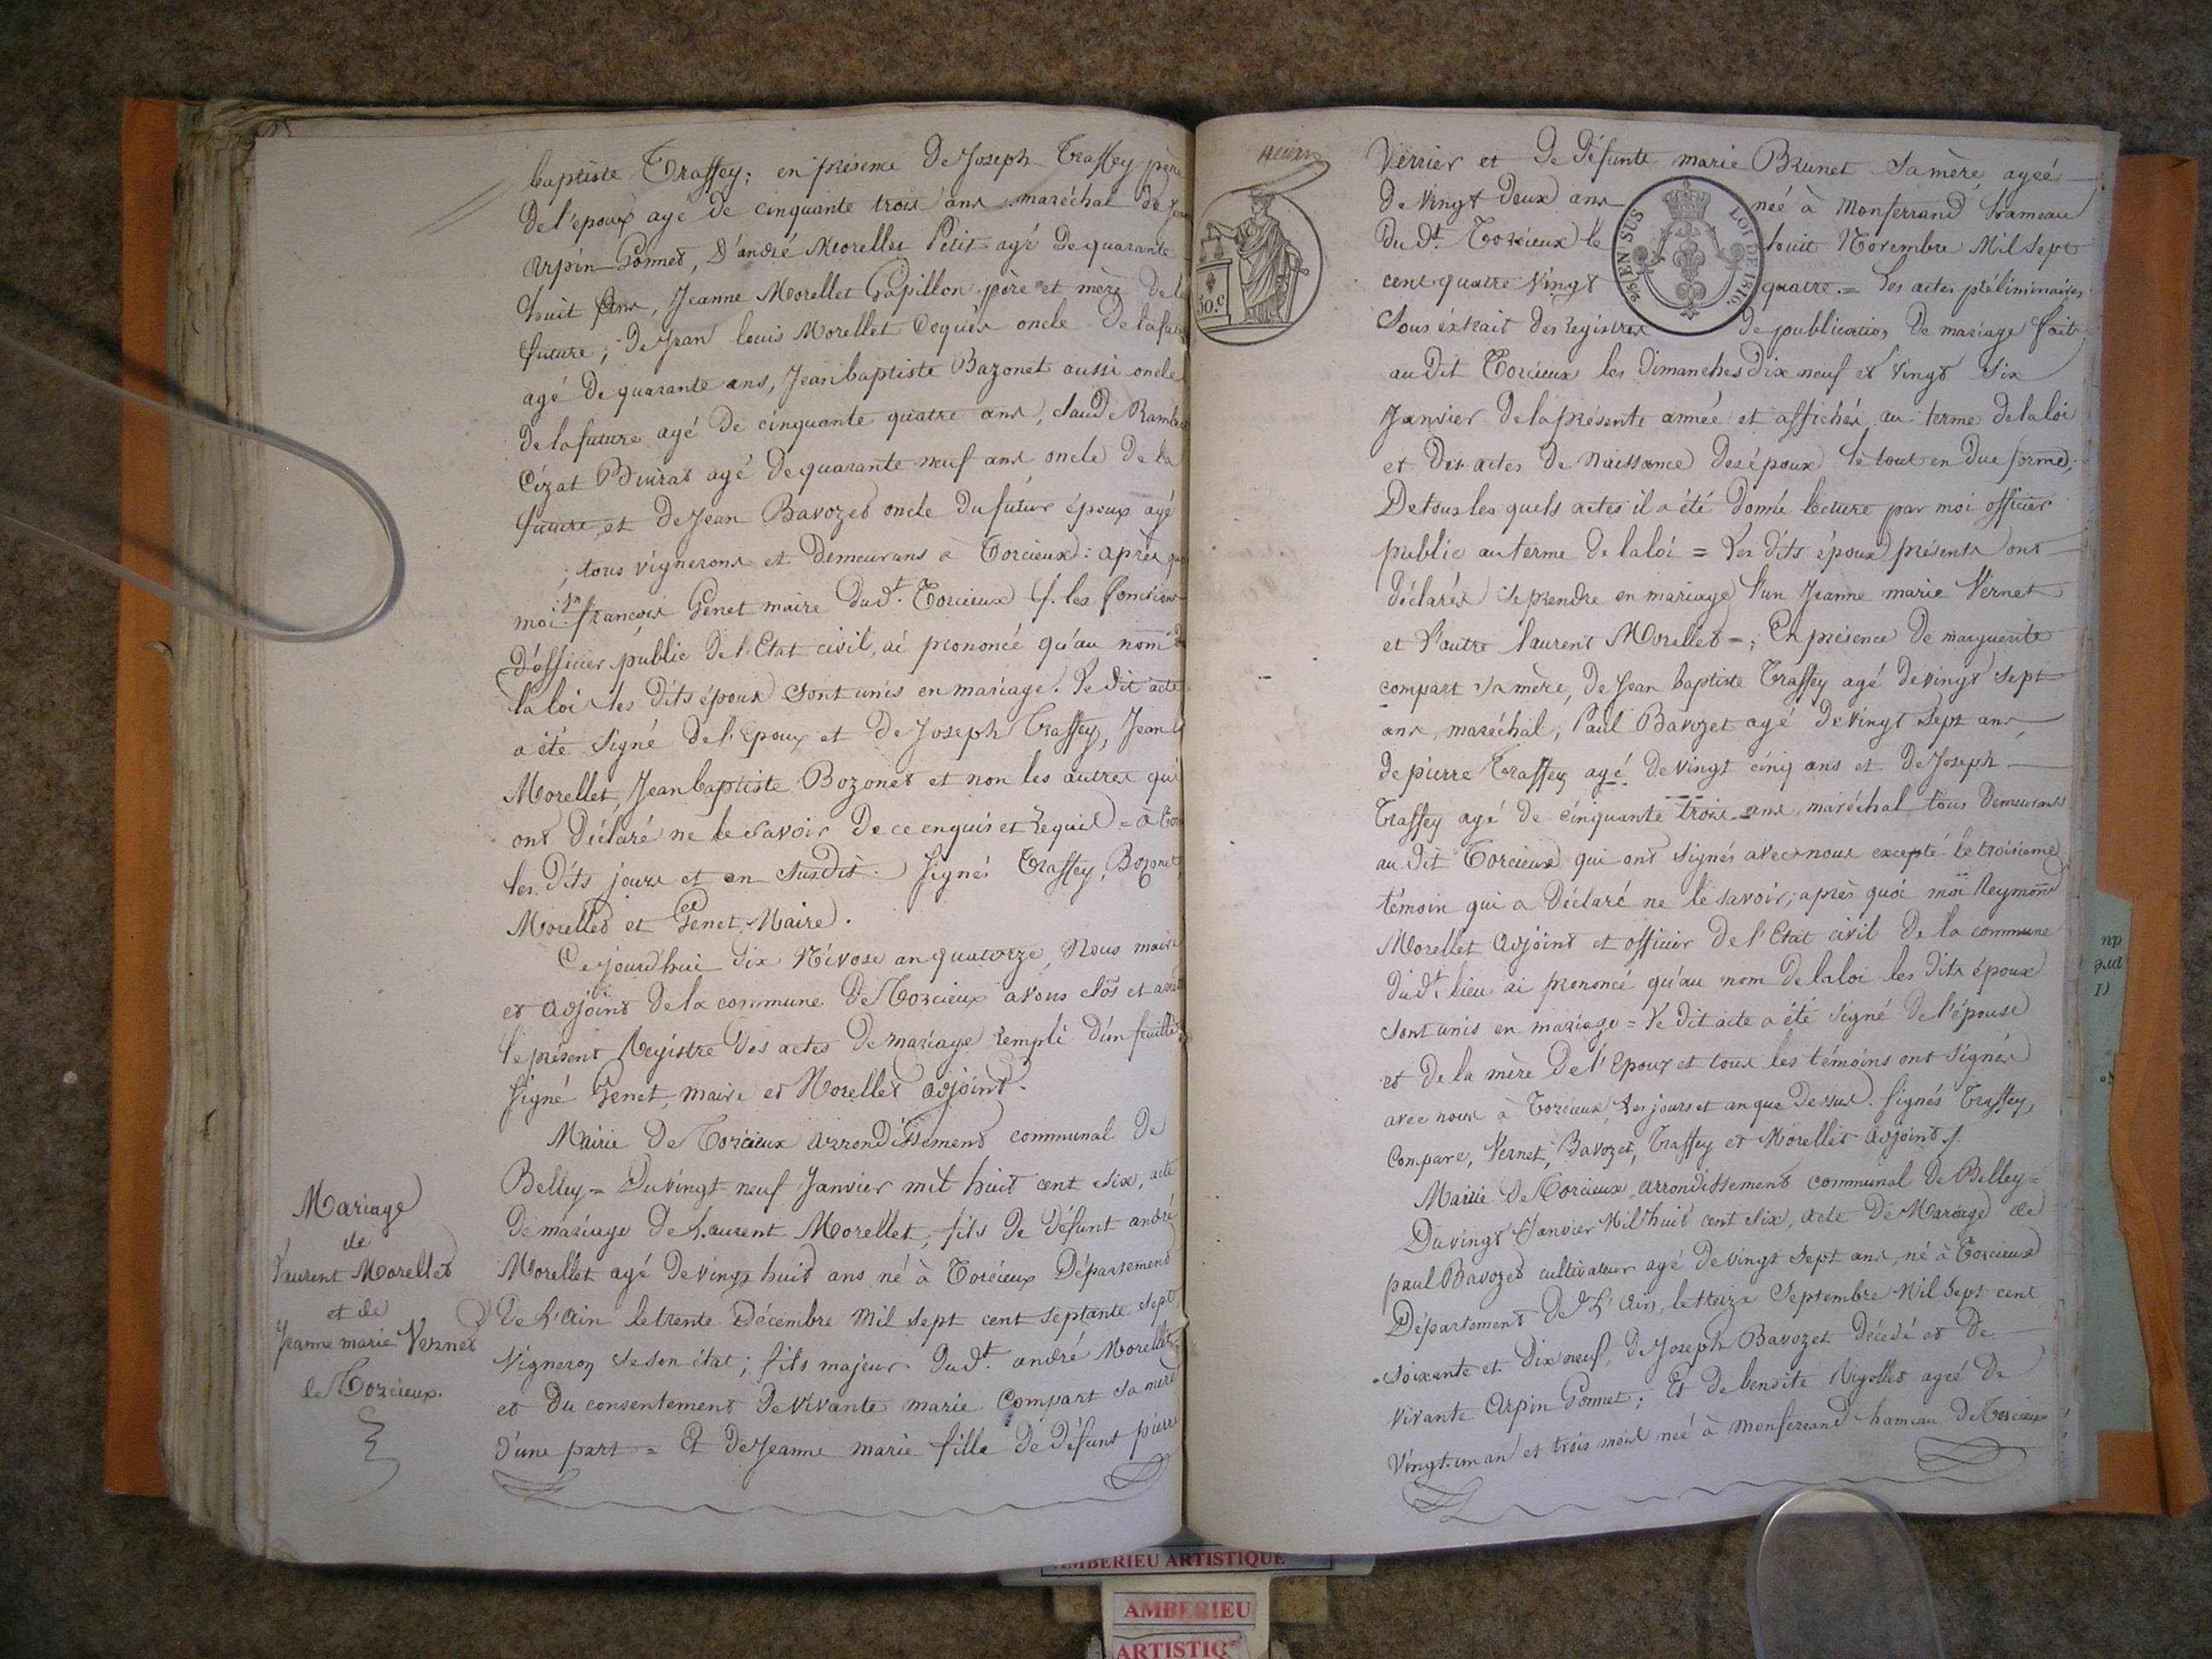 baptiste Traffey; en présence de Joseph Traffey père
de l'époux agé de cinquante trois ans maréchal de
Arpin Gonnet, D'andré Morellet Petit agé de quarante
huit ans, Jeanne Morellet Papillon père et mère de la
future; de Jean louis Morellet Coquér oncle de la future
agé de quarante ans, Jean baptiste Bazonet aussi oncle
de la future agé de cinquante quatre ans, claude
Cézat agé de quarante neuf ans oncle de la
future et de Jean Bavozet oncle du futur époux agé
; tous vignerons et demeurans à Torcieux: après
moi françois Genet maire dud.t Torcieux f. les fonctions
d'officier public de l'Etat civil, ai prononcé qu'au nom de
la loi les dits époux sont unis en mariage. Le dit acte
a été signé de l'Epoux et de Joseph Traffey, Jean
Morellet, Jean baptiste Bozonet et non les autres qui
ont déclaré ne le savoir de ce enquis et requis = à
les dits jours et an susdit. signés Traffey, Bozonet,
Morellet et Genet, Maire.
Cejourd'hui dix Nivose an quatorze, Nous maire
et adjoint de la commune de Torcieux avons clôs et arrêté
le présent Registre des actes de mariage rempli d'un feuillet
signé Genet, maire et Morellet adjoint.
Mairie de Torcieux arrondissement communal de
Belley = Du vingt neuf Janvier mil huit cent six, acte
de mariage de Laurent Morellet, fils de défunt andré
Morellet agé de vingt huit ans né à Torcieux Département
de L'Ain le trente Décembre mil sept cent septante sept
Vigneron de son état; fils majeur dud.t andré Morellet
et du consentement de vivante marie Compart sa mère
d'une part = Et de Jeanne marie fille de défunt pierre
Mariage
de
Laurent Morellet
et de
Jeanne marie Vernet
de Torcieux.
30.c
25 EN SUS
LOI DE 1816.
Verrier et de défunte marie Brunet sa mère, agée
de vingt deux ans née à Monferrand hameau
du d.t Torcieux le huit Novembre Mil sept
cent quatre vingt quatre. = Les actes préliminaires
sous éxtrait des registres de publication de mariage faite
au dit Torcieux les dimanches dix neuf et vingt six
Janvier de la présente année et affichés au terme de la loi
et des actes de Naissance des époux le tout en due forme;
De tous les quels actes il a été donné lecture par moi officier
public au terme de la loi = Les dits époux présents ont
déclarés se prendre en mariage l'un Jeanne marie Vernet
et l'autre laurent Morellet =; En présence de marguerite
compart sa mère, de Jean baptiste Traffey agé de vingt sept
ans, maréchal, Paul Bavozet agé de vingt sept ans,
de pierre Traffey agé de vingt cinq ans et de Joseph
Traffey agé de cinquante trois ans, maréchal tous demeurans
au dit Torcieux qui ont signés avec nous excepté le troisieme
témoin qui a déclaré ne le savoir; après quoi moi Reymond
Morellet adjoint et officier de l'Etat civil de la commune
dud.t lieu ai prononcé qu'au nom de la loi les dits époux
sont unis en mariage = Le dit acte a été signé de l'épouse
et de la mère de l'Epoux et tous les témoins ont signés
avec nous à Torcieux les jours et an que dessus. signés Traffey,
Compare, Vernet, Bavozet, Traffey et Morellet adjoint /.
Mairie de Torcieux, arrondissement communal de Belley =
Du vingt Janvier Mil huit cent six, acte de Mariage de
paul Bavozet cultivateur agé de vingt sept ans, né à Torcieux
Département de L'Ain, le treize Septembre Mil sept cent
soixante et dix neuf, de Joseph Bavozet décédé et de
vivante Arpin Gonnet; Et de benoite Rigollet agée de
Vingt un an et trois mois née à Monferrand hameau de Torcieux
AMBERIEU ARTISTIQUE
AMBERIEU
ARTISTIQ